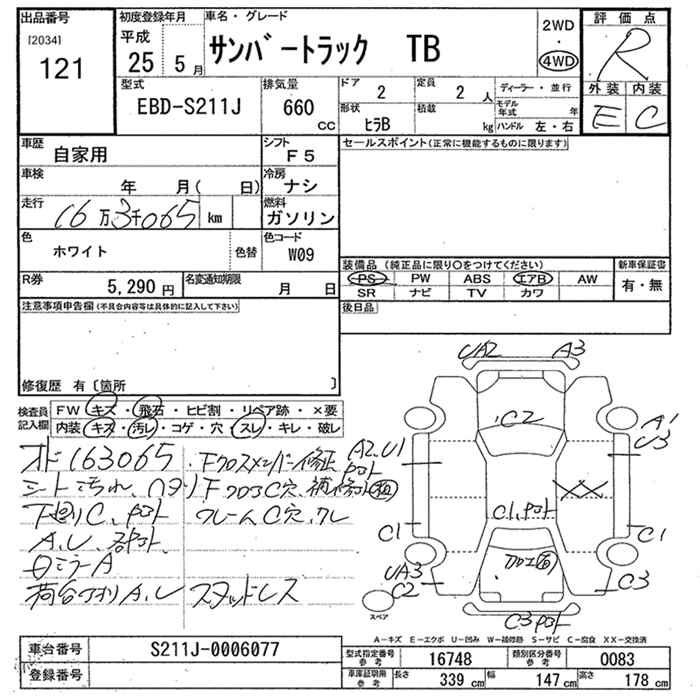 出品番号
[2034]
121
初度登録年月
平成
25 5 月
車名・グレード
サンバートラック TB
2WD
4WD
評価点
R
外装 内装
E C
型式
EBD-S211J
排気量
660 CC
ドア
2
定員
2 人
ディーラー・並行
形状
ヒラB
積載
kg
モデル年式 年
ハンドル 左・右
車歴
自家用
シフト
F5
セールスポイント(正常に機能するものに限ります)
車検
年 月( 日)
冷房
ナシ
走行
16万3千065 km
燃料
ガソリン
色
ホワイト
色替
色コード
W09
R券
5,290 円
名変通知期限
月 日
装備品(純正品に限り○をつけてください)
新車保証書
PS PW ABS エアB AW
有・無
SR ナビ TV カワ
注意事項申告欄(不具合内容等は具体的に記入して下さい)
後日品
修復歴 有〔箇所 〕
検査員記入欄
FW キズ・飛石・ヒビ割・リペア跡・×要
内装 キズ・汚レ・コゲ・穴・スレ・キレ・破レ
オド163065
Fクロスメンバー修正
シート汚れ、
下廻りC、
フレームC穴、
A.U.
ミラーA
荷台アオリA.U
スタッドレス
UA2 A3
C2
A1
U3
A2.U1
C1
XX
C1
C1
UA3
C2
C3
C3
スペア
A-キズ E-エクボ U-凹み W-補修跡 S-サビ C-腐食 XX-交換済
車台番号
S211J-0006077
登録番号
型式指定番号 参考
16748
類別区分番号 参考
0083
車庫証明用 参考
長さ 339 cm
幅 147 cm
高さ 178 cm